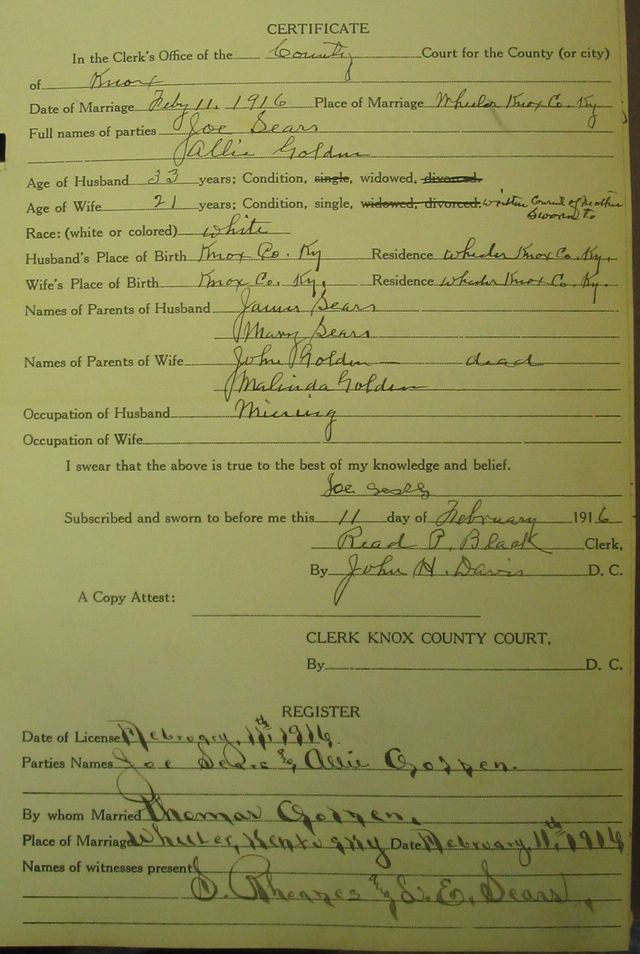 CERTIFICATE
In the Clerk's Office of the County Court for the County (or city)
of Knox
Date of Marriage Feby 11, 1916 Place of Marriage Wheeler Knox Co. Ky
Full names of parties Joe Sears
Allie Golden
Age of Husband 33 years; Condition, single, widowed, divorced.
Age of Wife 21 years; Condition, single, widowed, divorced. written Consent of Mother
Sworn to
Race: (white or colored) white
Husband's Place of Birth Knox Co. Ky Residence Wheeler Knox Co. Ky.
Wife's Place of Birth Knox Co. Ky. Residence Wheeler Knox Co. Ky.
Names of Parents of Husband James Sears
Mary Sears
Names of Parents of Wife John Golden — dead
Malinda Golden
Occupation of Husband Mining
Occupation of Wife
I swear that the above is true to the best of my knowledge and belief.
Joe
Subscribed and sworn to before me this 11 day of February 1916
Read P. Black Clerk,
By John H. Davis D. C.
A Copy Attest:
CLERK KNOX COUNTY COURT,
By D. C.
REGISTER
Date of License February, 11th, 1916.
Parties Names Joe Sears & Allie Golden.
By whom Married Thomas Golden.
Place of Marriage Wheeler, Kentucky Date February, 11th, 1916
Names of witnesses present & E. Sears,